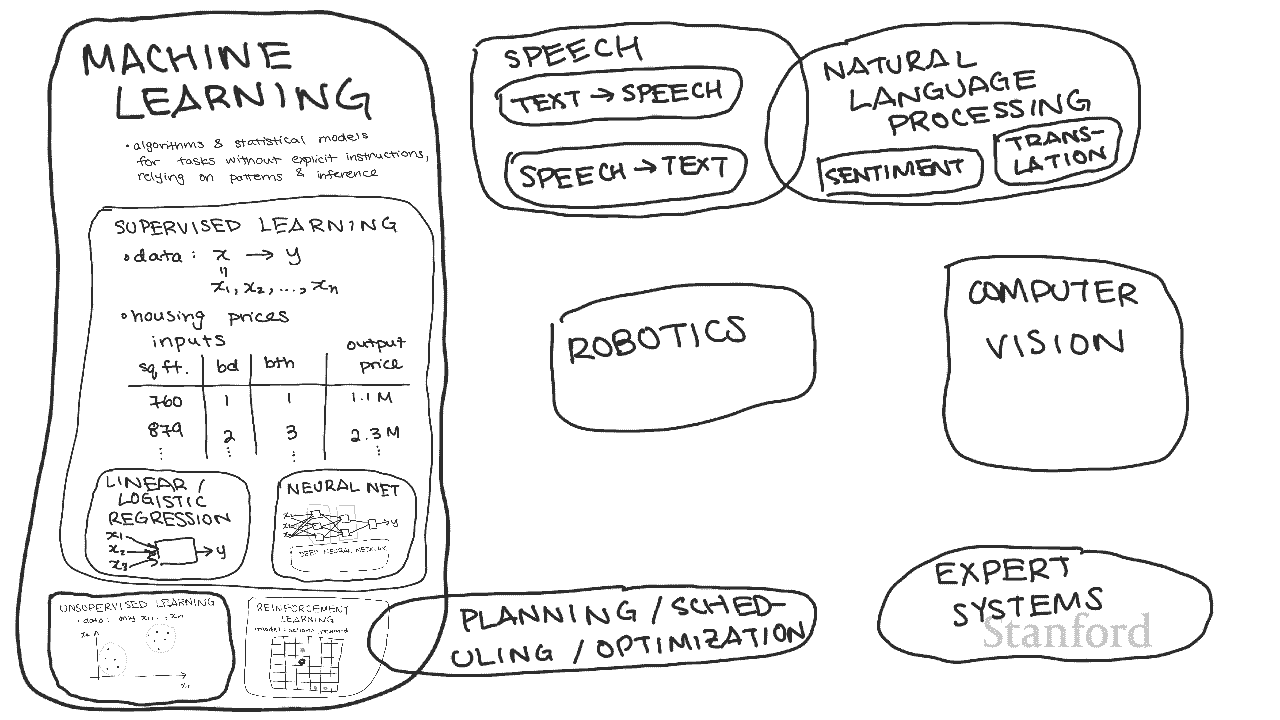 MACHINE
LEARNING
• algorithms & statistical models
for tasks without explicit instructions,
relying on patterns & inference
SUPERVISED LEARNING
• data: x → y
=
x₁, x₂, ..., xₙ
• housing prices
inputs
output
sq ft. bd bth price
760 1 1 1.1M
879 2 3 2.3M
⋮ ⋮ ⋮ ⋮
LINEAR /
LOGISTIC
REGRESSION
x₁
x₂ → y
x₃
NEURAL NET
x₁
x₂ → y
x₃
DEEP NEURAL NETWORK
UNSUPERVISED LEARNING
• data: only x₁, ..., xₙ
x₂
x₁
REINFORCEMENT
LEARNING
model: actions, reward
SPEECH
TEXT → SPEECH
SPEECH → TEXT
NATURAL
LANGUAGE
PROCESSING
SENTIMENT
TRANS-
LATION
ROBOTICS
COMPUTER
VISION
PLANNING / SCHED-
ULING / OPTIMIZATION
EXPERT
SYSTEMS
Stanford